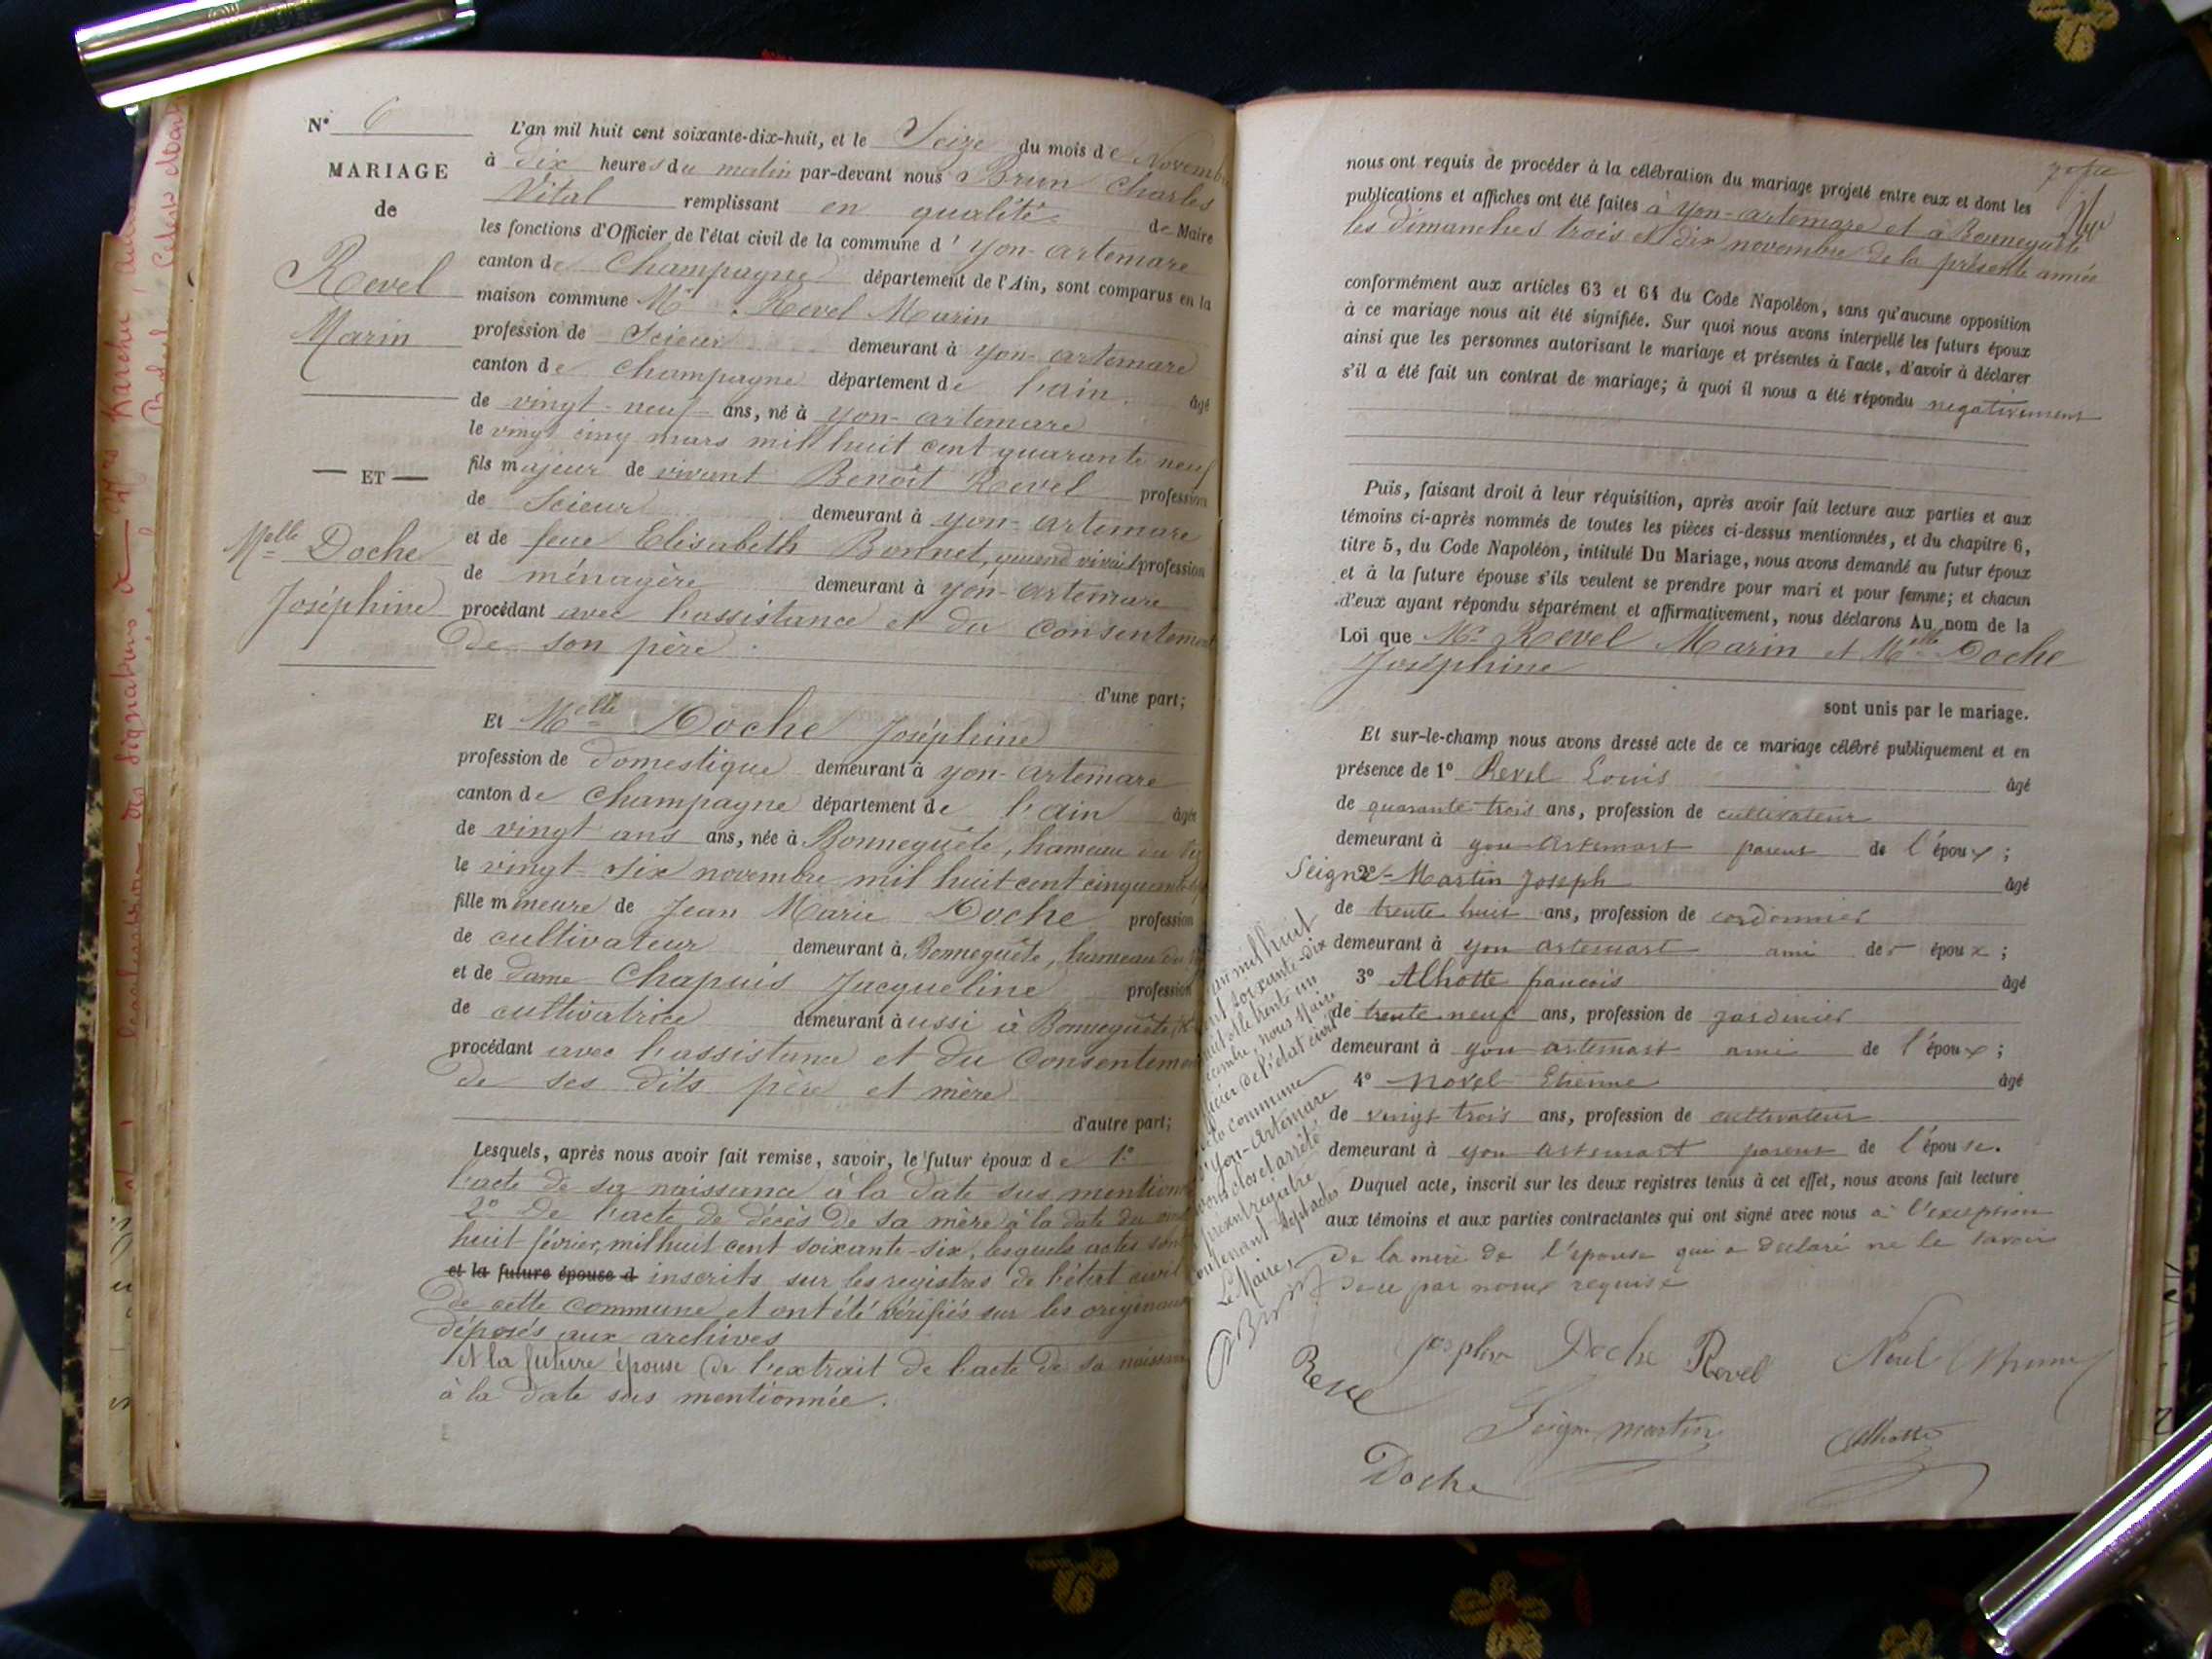 N° 6
MARIAGE
de
Revel
Marin
— ET —
Melle Doche
Joséphine
L'an mil huit cent soixante-dix-huit, et le Seize du mois de Novembre
à dix heures du matin par-devant nous Brun Charles
Vital remplissant en qualité de Maire
les fonctions d'Officier de l'état civil de la commune d' Yon-artemare
canton de Champagne département de l'Ain, sont comparus en la
maison commune Mr. Revel Marin
profession de Scieur demeurant à Yon-artemare
canton de Champagne département de l'ain. âgé
de vingt-neuf ans, né à yon-artemare
le vingt cinq mars mil huit cent quarante neuf
fils majeur de vivant Benoît Revel profession
de Scieur demeurant à yon-artemare
et de feue Elisabeth Bonnet, quand vivait profession
de ménagère demeurant à yon-artemare
procédant avec l'assistance et du consentement
de son père.
d'une part;
Et Melle Doche Joséphine
profession de domestique demeurant à yon-artemare
canton de Champagne département de l'ain âgée
de vingt ans ans, née à Bonneguête, hameau du
le vingt-six novembre mil huit cent cinquante
fille mineure de Jean Marie Doche profession
de cultivateur demeurant à Bonneguête, hameau du
et de dame Chapuis Jacqueline profession
de cultivatrice demeurant aussi à Bonneguête
procédant avec l'assistance et du Consentement
de ses dits père et mère
d'autre part;
Lesquels, après nous avoir fait remise, savoir, le futur époux de 1°
l'acte de sa naissance à la date sus mentionnée
2° De l'acte de décès de sa mère à la date du
huit février, mil huit cent soixante-six, lesquels actes sont
et la future épouse d inscrits sur les registres de l'état civil
de cette commune et ont été vérifiés sur les originaux
déposés aux archives
Et la future épouse de l'extrait de l'acte de sa naissance
à la date sus mentionnée.
nous ont requis de procéder à la célébration du mariage projeté entre eux et dont les
publications et affiches ont été faites à Yon-artemare et à Bonneguête
les dimanches trois et dix novembre de la présente année
conformément aux articles 63 et 64 du Code Napoléon, sans qu'aucune opposition
à ce mariage nous ait été signifiée. Sur quoi nous avons interpellé les futurs époux
ainsi que les personnes autorisant le mariage et présentes à l'acte, d'avoir à déclarer
s'il a été fait un contrat de mariage; à quoi il nous a été répondu negativement
Puis, faisant droit à leur réquisition, après avoir fait lecture aux parties et aux
témoins ci-après nommés de toutes les pièces ci-dessus mentionnées, et du chapitre 6,
titre 5, du Code Napoléon, intitulé Du Mariage, nous avons demandé au futur époux
et à la future épouse s'ils veulent se prendre pour mari et pour femme; et chacun
d'eux ayant répondu séparément et affirmativement, nous déclarons Au nom de la
Loi que Mr Revel Marin et Melle Doche
Joséphine
sont unis par le mariage.
Et sur-le-champ nous avons dressé acte de ce mariage célébré publiquement et en
présence de 1° Revel Louis âgé
de quarante trois ans, profession de cultivateur
demeurant à yon artemart parent de l'époux;
Seigne 2° Martin Joseph âgé
de trente huit ans, profession de cordonnier
demeurant à yon artemart ami de époux;
3° Alhotte francois âgé
de trente neuf ans, profession de jardinier
demeurant à yon artemart ami de l'époux;
4° Novel Etienne âgé
de vingt trois ans, profession de cultivateur
demeurant à yon artemart parent de l'épouse.
Duquel acte, inscrit sur les deux registres tenus à cet effet, nous avons fait lecture
aux témoins et aux parties contractantes qui ont signé avec nous a l'exception
de la mere de l'epouse qui a declaré ne le savoir
de ce par nous requise
an mil huit
cent soixante-dix
huit et le trente un
décembre, nous Maire
officier de l'état civil
de la commune
d'Yon-Artemare
avons clos et arrêté
le présent registre
contenant sept actes
Le Maire,
Brun
Revel
Josephine Doche Revel Novel Etienne
Seigne martin Alhotte
Doche